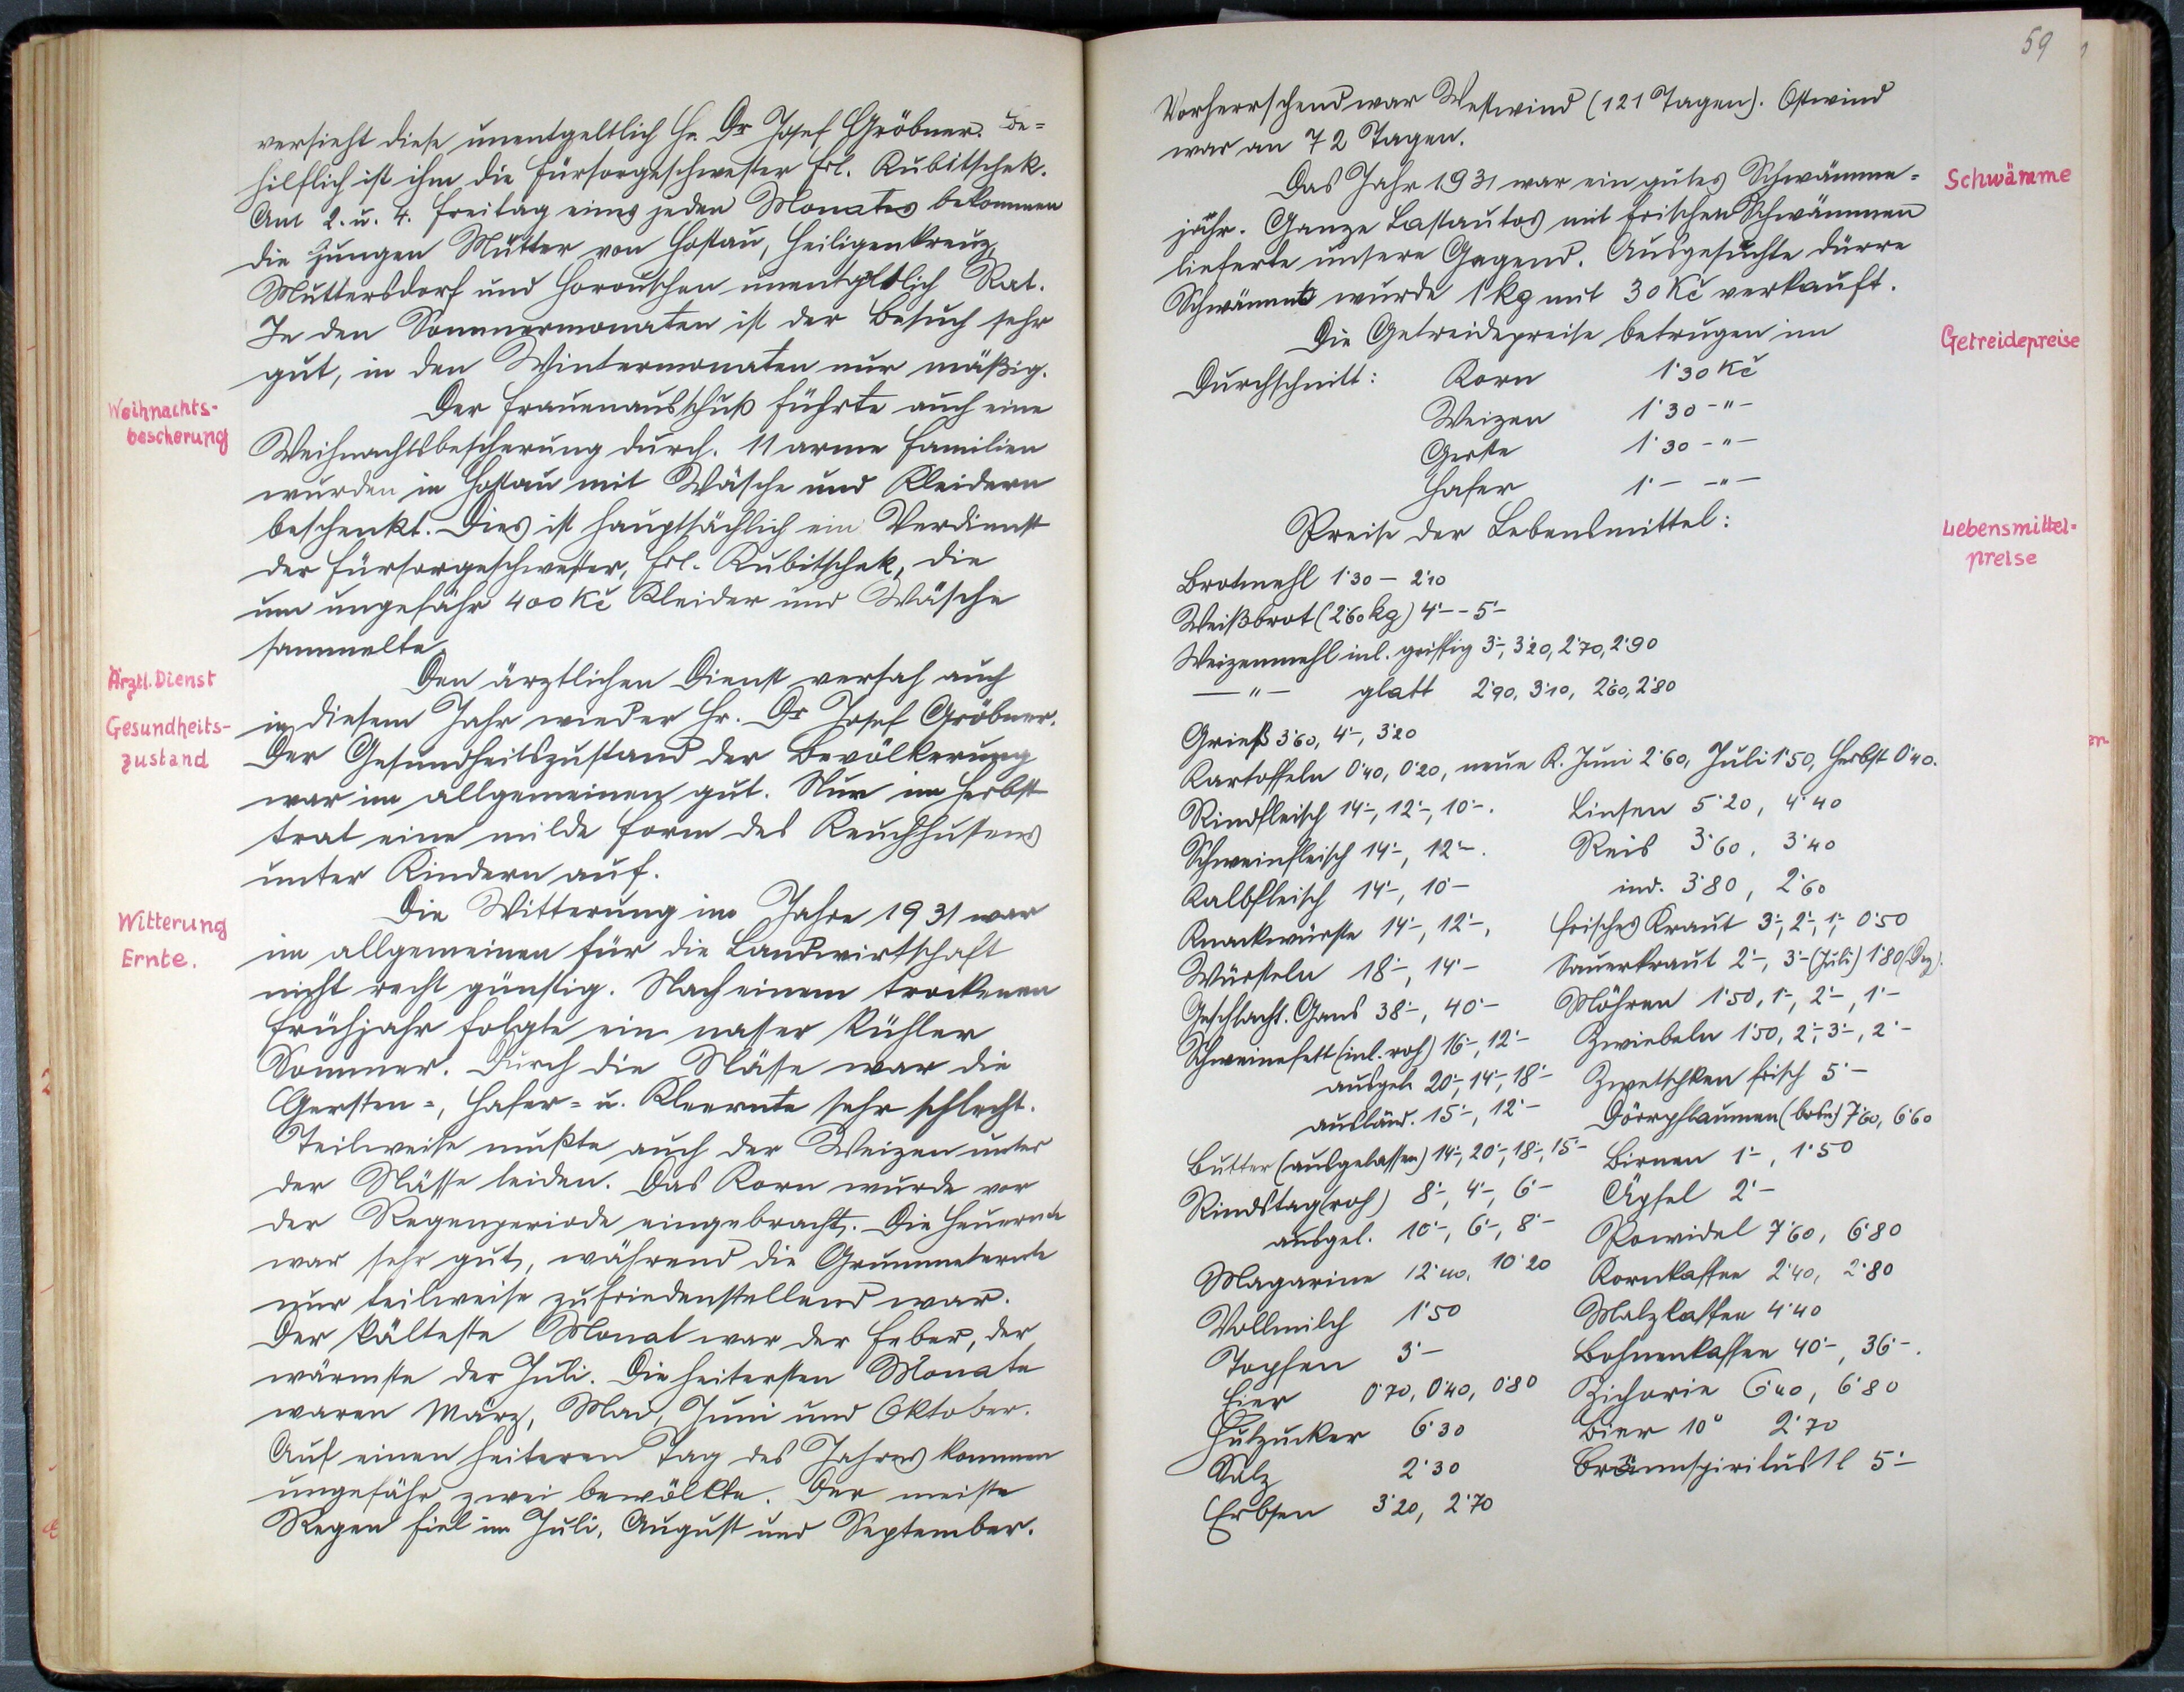 versieht diese unentgeltlich Hr. Dr Josef Gröbner. Be=
hilflich ist ihm die Fürsorgeschwester Frl. Kubitschek.
Am 2. u. 4. Freitag eines jeden Monates bekommen
die jungen Mütter von Hostau, Heiligenkreuz,
Muttersdorf und Horouschen unentgeltlich Rat.
In den Sommermonaten ist der Besuch sehr
gut, in den Wintermonaten nur mäßig.
Weihnachts-
bescherung
Der Frauenausschuß führte auch eine
Weihnachtsbescherung durch. 11 arme Familien
wurden in Hostau mit Wäsche und Kleidern
beschenkt. Dies ist hauptsächlich ein Verdienst
der Fürsorgeschwester, Frl. Kubitschek, die
um ungefähr 400 Kč Kleider und Wäsche
sammelte.
Ärztl. Dienst
Den ärztlichen Dienst versah auch
Gesundheits-
zustand
in diesem Jahr wieder Hr. Dr Josef Gröbner.
Der Gesundheitszustand der Bevölkerung
war im allgemeinen gut. Nur im Herbst
trat eine milde Form des Keuchhustens
unter Kindern auf.
Witterung
Ernte.
Die Witterung im Jahre 1931 war
im allgemeinen für die Landwirtschaft
nicht recht günstig. Nach einem trockenen
Frühjahr folgte ein nasser kühler
Sommer. Durch die Nässe war die
Gersten=, Hafer= u. Kleernte sehr schlecht.
Teilweise mußte auch der Weizen unter
der Nässe leiden. Das Korn wurde vor
der Regenperiode eingebracht. Die Heuernte
war sehr gut, während die Grummeternte
nur teilweise zufriedenstellend war.
Der kälteste Monat war der Feber, der
wärmste der Juli. Die heitersten Monate
waren März, Mai, Juni und Oktober.
Auf einen heiteren Tag des Jahres kommen
ungefähr zwei bewölkte. Der meiste
Regen fiel im Juli, August und September.
59
Vorherrschend war Westwind (121 Tagen). Ostwind
war an 72 Tagen.
Schwämme
Das Jahr 1931 war ein gutes Schwämme=
jahr. Ganze Lastautos mit frischen Schwämmen
lieferte unsere Gegend. Ausgesuchte dürre
Schwämme wurde 1 kg mit 30 Kč verkauft.
Getreidepreise
Die Getreidepreise betrugen im
Durchschnitt: Korn 1˙30 Kč
Weizen 1˙30 -"-
Gerste 1˙30 -"-
Hafer 1˙- -"-
Lebensmittel-
preise
Preise der Lebensmittel:
Brotmehl 1˙30 - 2˙10
Weißbrot (2˙60 kg) 4˙- - 5˙-
Weizenmehl inl. griffig 3˙-, 3˙20, 2˙70, 2˙90
-"- glatt 2˙90, 3˙10, 2˙60, 2˙80
Grieß 3˙60, 4˙-, 3˙20
Kartoffeln 0˙40, 0˙20, neue K. Juni 2˙60, Juli 1˙50, Herbst 0˙40.
Rindfleisch 14˙-, 12˙-, 10˙-. Linsen 5˙20, 4˙40
Schweinfleisch 14˙-, 12˙-. Reis 3˙60, 3˙40
Kalbfleisch 14˙-, 10˙- ind. 3˙80, 2˙60
Knackwürste 14˙-, 12˙-, frisches Kraut 3˙-, 2˙-, 1˙-, 0˙50
Würsteln 18˙-, 14˙- Sauerkraut 2˙-, 3˙- (Juli) 1˙80 (Dez).
Geschlacht. Gans 38˙-, 40˙- Möhren 1˙50, 1˙-, 2˙-, 1˙-
Schweinefett (inl. roh) 16˙-, 12˙- Zwiebeln 1˙50, 2˙-, 3˙-, 2˙-
ausgel. 20˙-, 14˙-, 18˙- Zwetschken frisch 5˙-
ausländ. 15˙-, 12˙- Dörrpflaumen 7˙60, 6˙60
Butter (ausgelassen) 14˙-, 20˙-, 18˙-, 15˙- Birnen 1˙-, 1˙50
Rindstag (roh) 8˙-, 4˙-, 6˙- Äpfel 2˙-
ausgel. 10˙-, 6˙-, 8˙- Powidel 7˙60, 6˙80
Magarine 12˙40, 10˙20 Kornkaffee 2˙40, 2˙80
Vollmilch 1˙50 Malzkaffee 4˙40
Topfen 3˙- Bohnenkaffee 40˙-, 36˙-.
Eier 0˙70, 0˙40, 0˙80 Zichorie 6˙40, 6˙80
Hutzucker 6˙30 Bier 10° 2˙70
Salz 2˙30 Brennspiritus 1 l 5˙-
Erbsen 3˙20, 2˙70